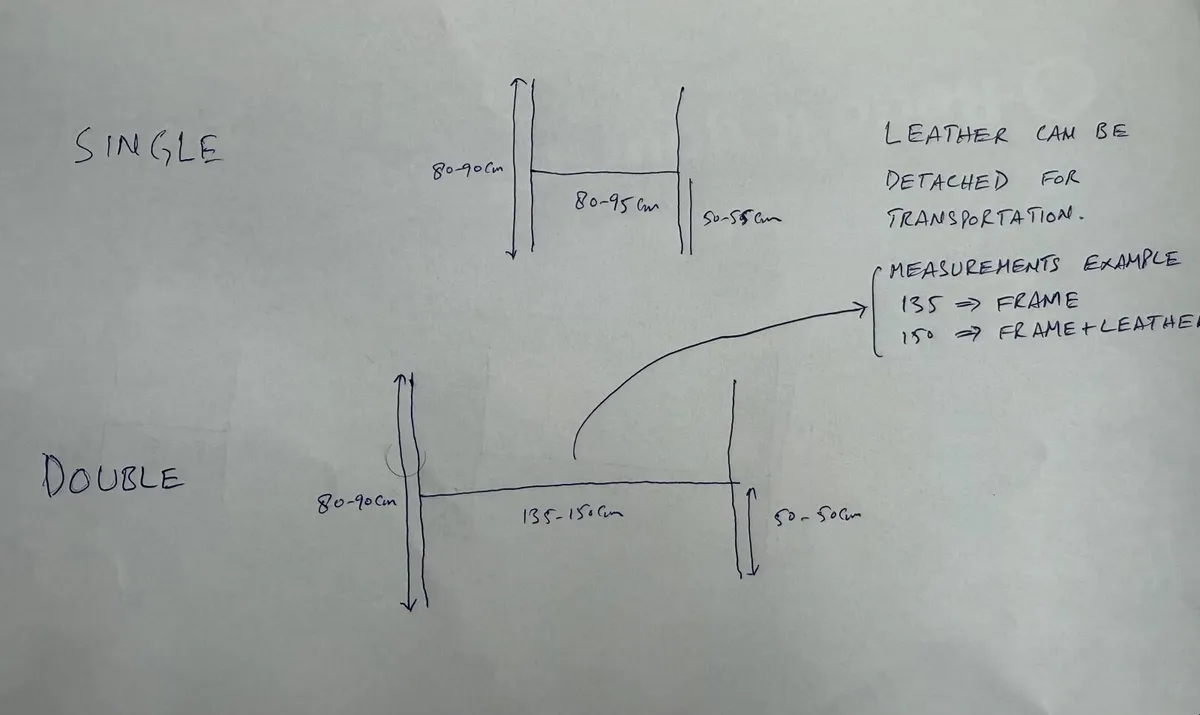 SINGLE
80-90cm
80-95cm
50-55cm
LEATHER CAN BE
DETACHED FOR
TRANSPORTATION.
MEASUREMENTS EXAMPLE
135 => FRAME
150 => FRAME+LEATHER
DOUBLE
80-90cm
135-150cm
50-50cm